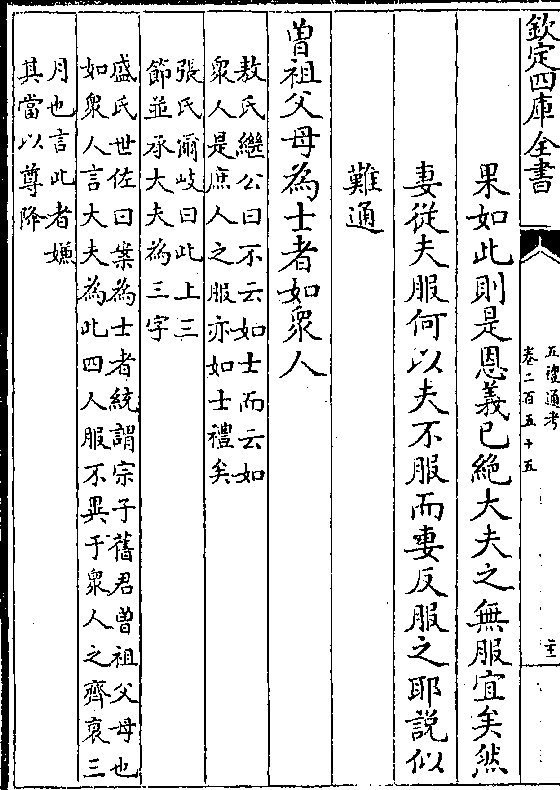 欽定四庫全書
五禮通考
卷二百五十五
果如此則是恩義已絶大夫之無服宜矣然
妻從夫服何以夫不服而妻反服之耶説似
難通
曾祖父母為士者如衆人
敖氏繼公曰不云如士而云如
衆人是庶人之服亦如士禮矣
張氏爾岐曰此上三
節並承大夫為三字
盛氏世佐曰案為士者統謂宗子舊君曾祖父母也
如衆人言大夫為此四人服不異于衆人之齊衰三
月也言此者嫌
其當以尊降